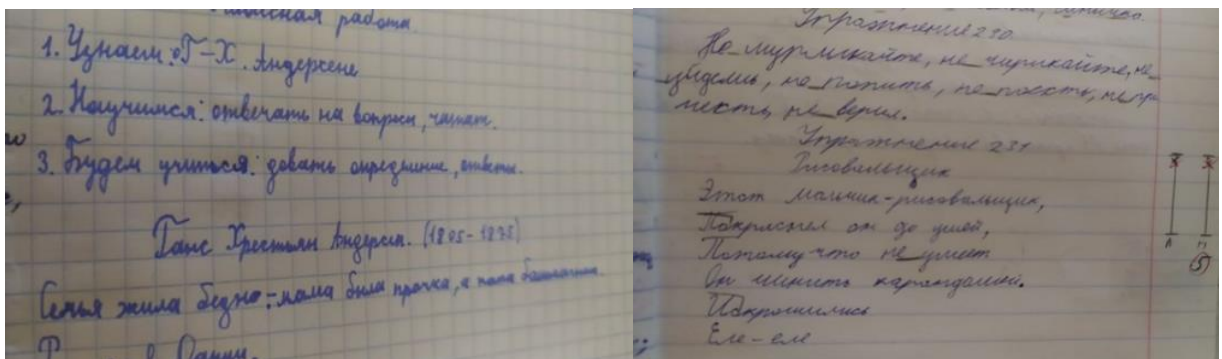 работа
1. Узнаем: о Г-Х. Андерсене
2. Научимся: отвечать на вопросы, читат.
3. Будем учиться: довать определение, ответы.
Ганс Хрестьян Андерсен. (1805-1875)
Семья жила бедно:-мама была прачка, а папа башмачник.
Упражнение 230.
Не мурлыкайте, не чирикайте, не
не
не верил.
Упражнение 231
Рисовальщик
Этот мальчик-рисовальщик,
Покраснел он до ушей,
Потому что не умеет
Он чинить карандашей.
Искрошились
Еле-еле
(5)